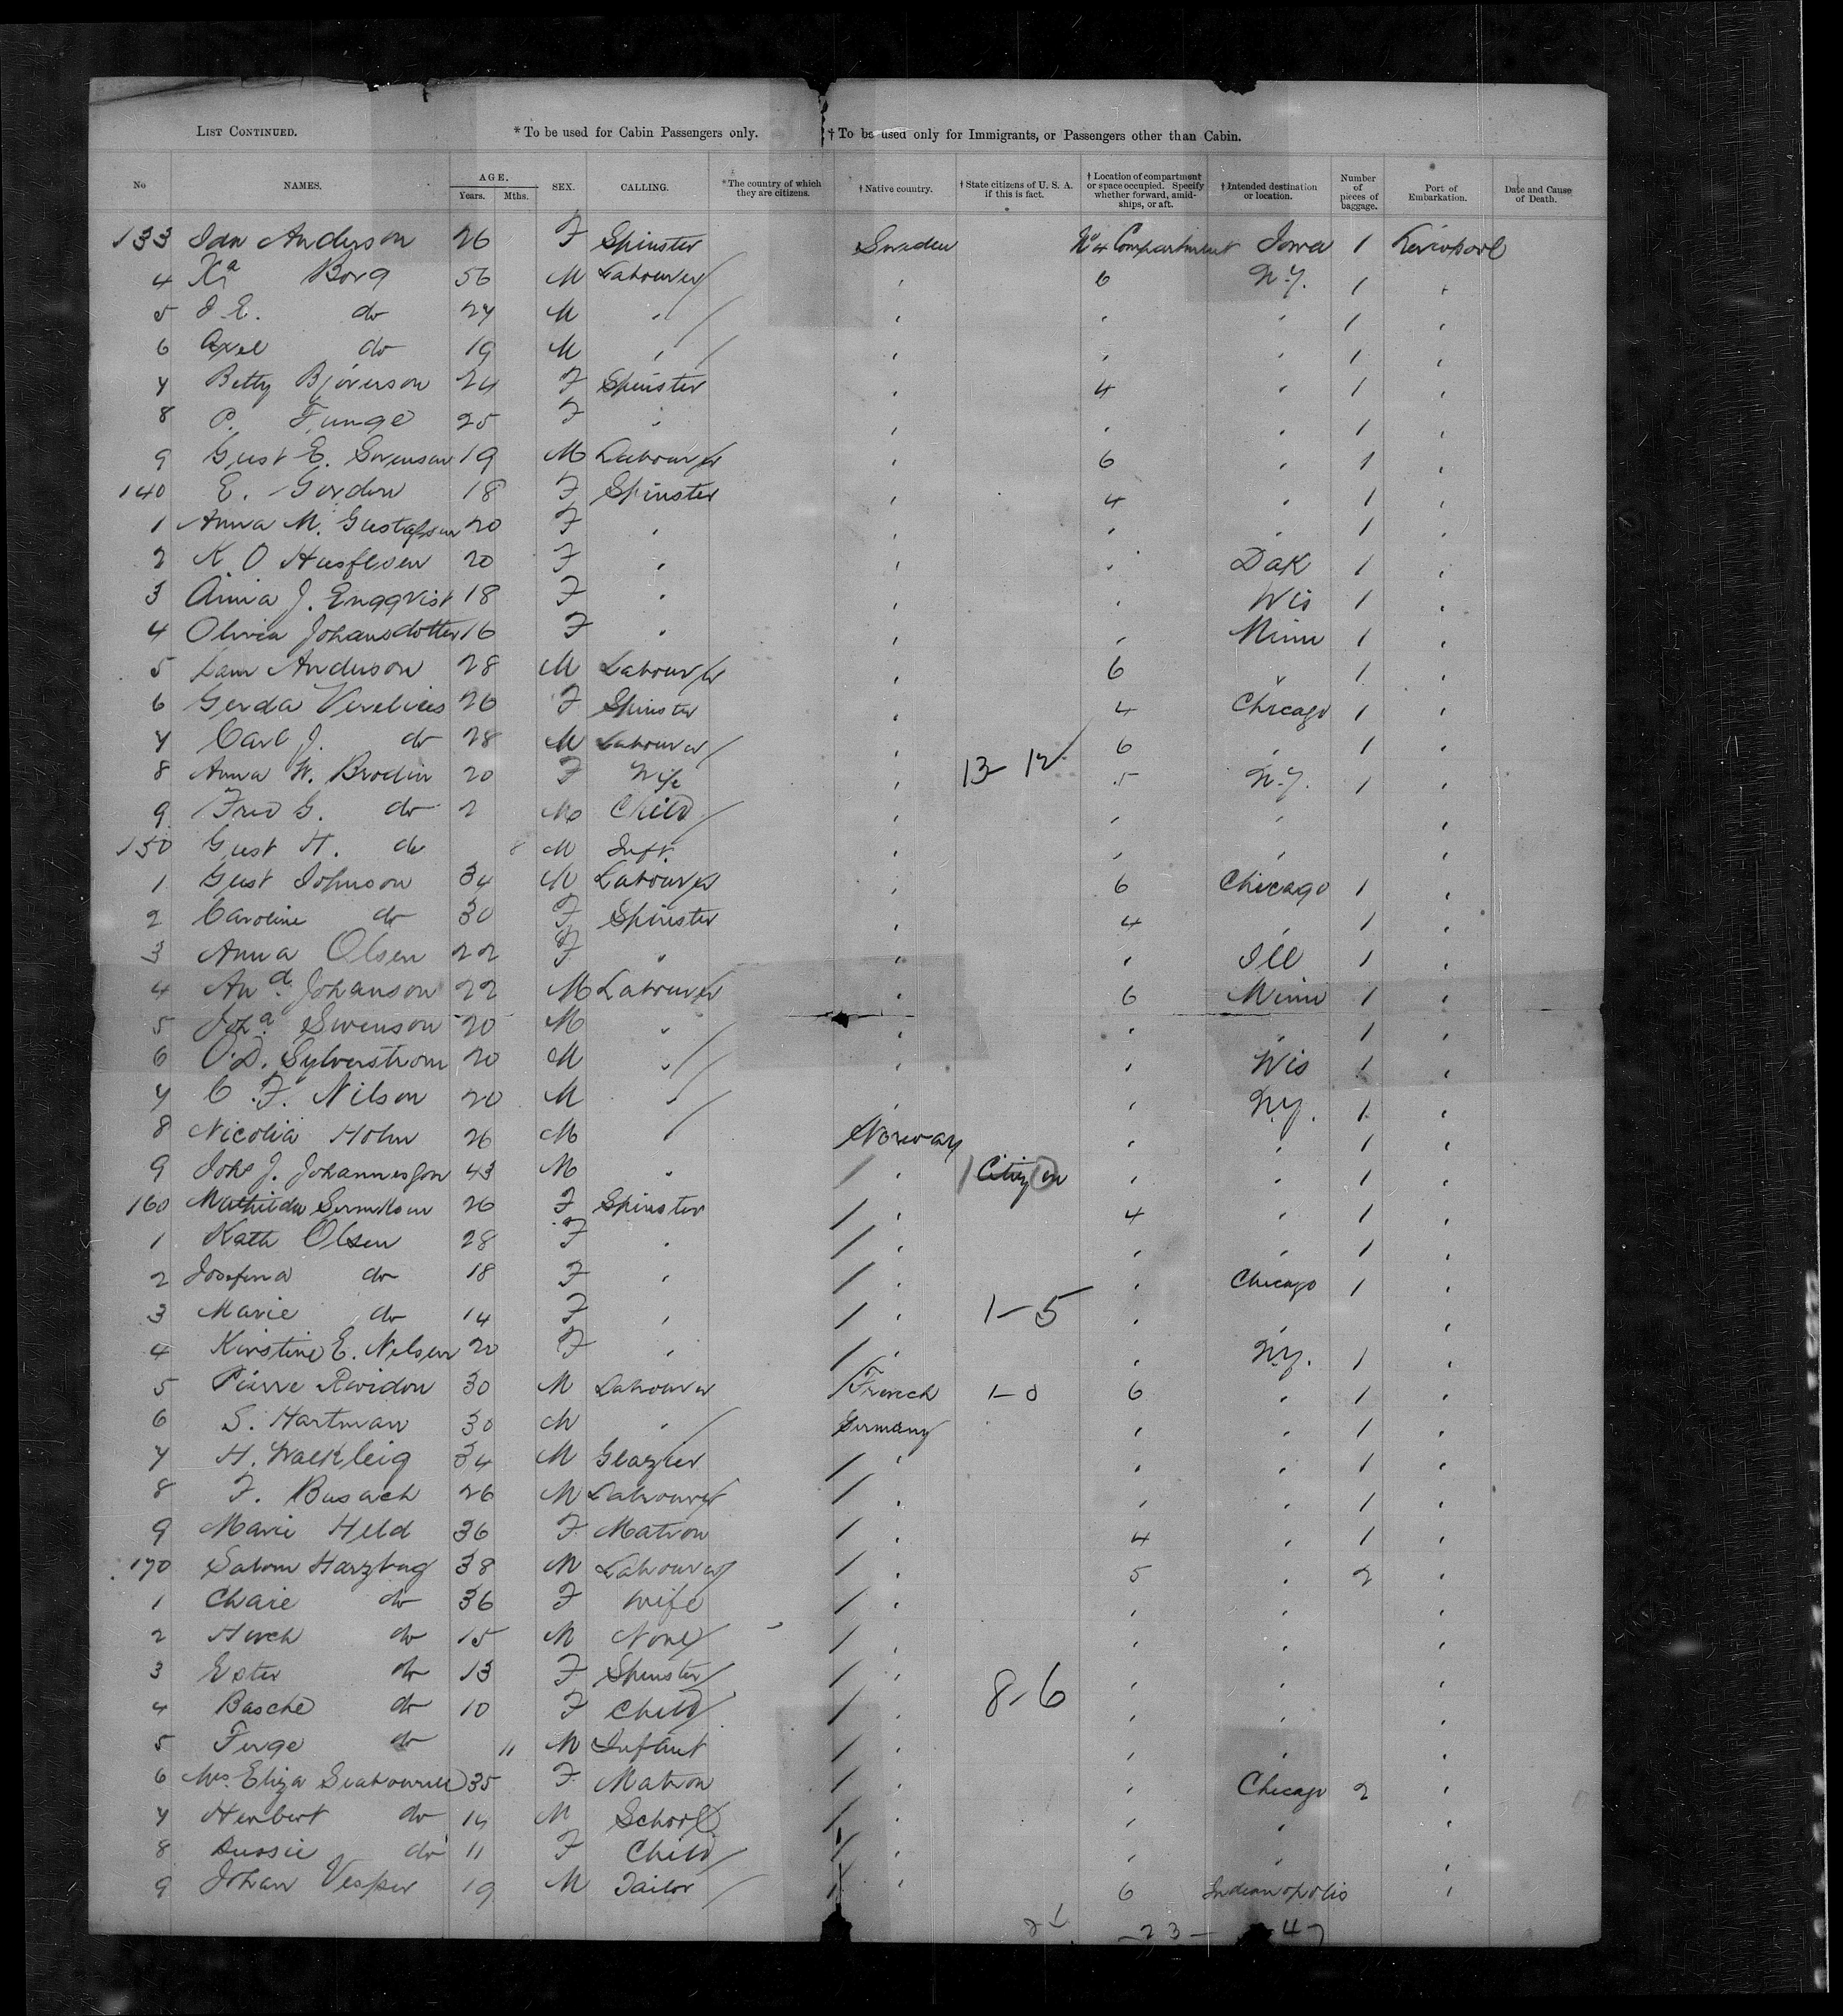 LIST CONTINUED. * To be used for Cabin Passengers only. † To be used only for Immigrants, or Passengers other than Cabin.
No NAMES. AGE. Years. Mths. SEX. CALLING. * The country of which they are citizens. † Native country. † State citizens of U. S. A. if this is fact. † Location of compartment or space occupied. Specify whether forward, amidships, or aft. † Intended destination or location. Number of pieces of baggage. Port of Embarkation. Date and Cause of Death.
133 Ida Anderson 26 F Spinster Sweden No 4 Compartment Iowa 1 Liverpool
4 Borg 56 M Labourer " 6 N.Y. 1 "
5 J. E. do 24 M " " " " 1 "
6 Axel do 19 M " " " " 1 "
7 Betty Bjorerson 24 F Spinster " 4 " 1 "
8 C. Funge 25 F " " " " 1 "
9 Gust E. Sorenson 19 M Labourer " 6 " 1 "
140 E. Gordon 18 F Spinster " 4 " 1 "
1 Anna M. Gustafsson 20 F " " " " 1 "
2 K. O 20 F " " " Dak 1 "
3 J. Engqvist 18 F " " " Wis 1 "
4 Olivia Johansdotter 16 F " " " Minn 1 "
5 Anderson 28 M Labourer " 6 " 1 "
6 Gerda 26 F Spinster " 4 Chicago 1 "
7 Carl J. do 28 M Labourer " 6 " 1 "
8 Anna W. Brodin 20 F Wife " 13-12 5 N.Y. 1 "
9 Fred G. do 2 M Child " " " "
150 Gust H. do 8 M Inft. " " " "
1 Gust Johnson 34 M Labourer " 6 Chicago 1 "
2 Caroline do 30 F Spinster " 4 " 1 "
3 Anna Olsen 22 F " " " Ill 1 "
4 And Johanson 22 M Labourer " 6 Minn 1 "
5 Joha Swenson 20 M " " " " 1 "
6 O. D. Sylverstrom 20 M " " " Wis 1 "
7 C. F. Nilson 20 M " " " N.Y. 1 "
8 Nicolia Holm 26 M " Norway " " 1 "
9 Johs J. Johannesson 43 M " " Citizen " " 1 "
160 Mathilda 26 F Spinster " 4 " 1 "
1 Kath Olsen 28 F " " " " 1 "
2 Josefina do 18 F " " " Chicago 1 "
3 Marie do 14 F " " 1-5 " " "
4 Kirstine E. Nelsen 20 F " " " N.Y. 1 "
5 Pierre Rividon 30 M Labourer French 1-0 6 " 1 "
6 S. Hartman 30 M " Germany " " 1 "
7 H. 34 M Glazier " " " 1 "
8 F. Busach 26 M Labourer " " " 1 "
9 Marie Held 36 F Matron " 4 " 1 "
170 Salom Harzbug 38 M Labourer " 5 " 2 "
1 Chaie do 36 F Wife " " " "
2 Hirch do 15 M None " " " "
3 Ester do 13 F Spinster " 8-6 " " "
4 Basche do 10 F Child " " " "
5 Feige do 11 M Infant " " " "
6 Mrs. Eliza 35 F Matron " " Chicago 2 "
7 Herbert do 14 M School " " " "
8 do 11 F Child " " " "
9 Johan Vesper 19 M Tailor " 6 Indianopolis "
23 - 47